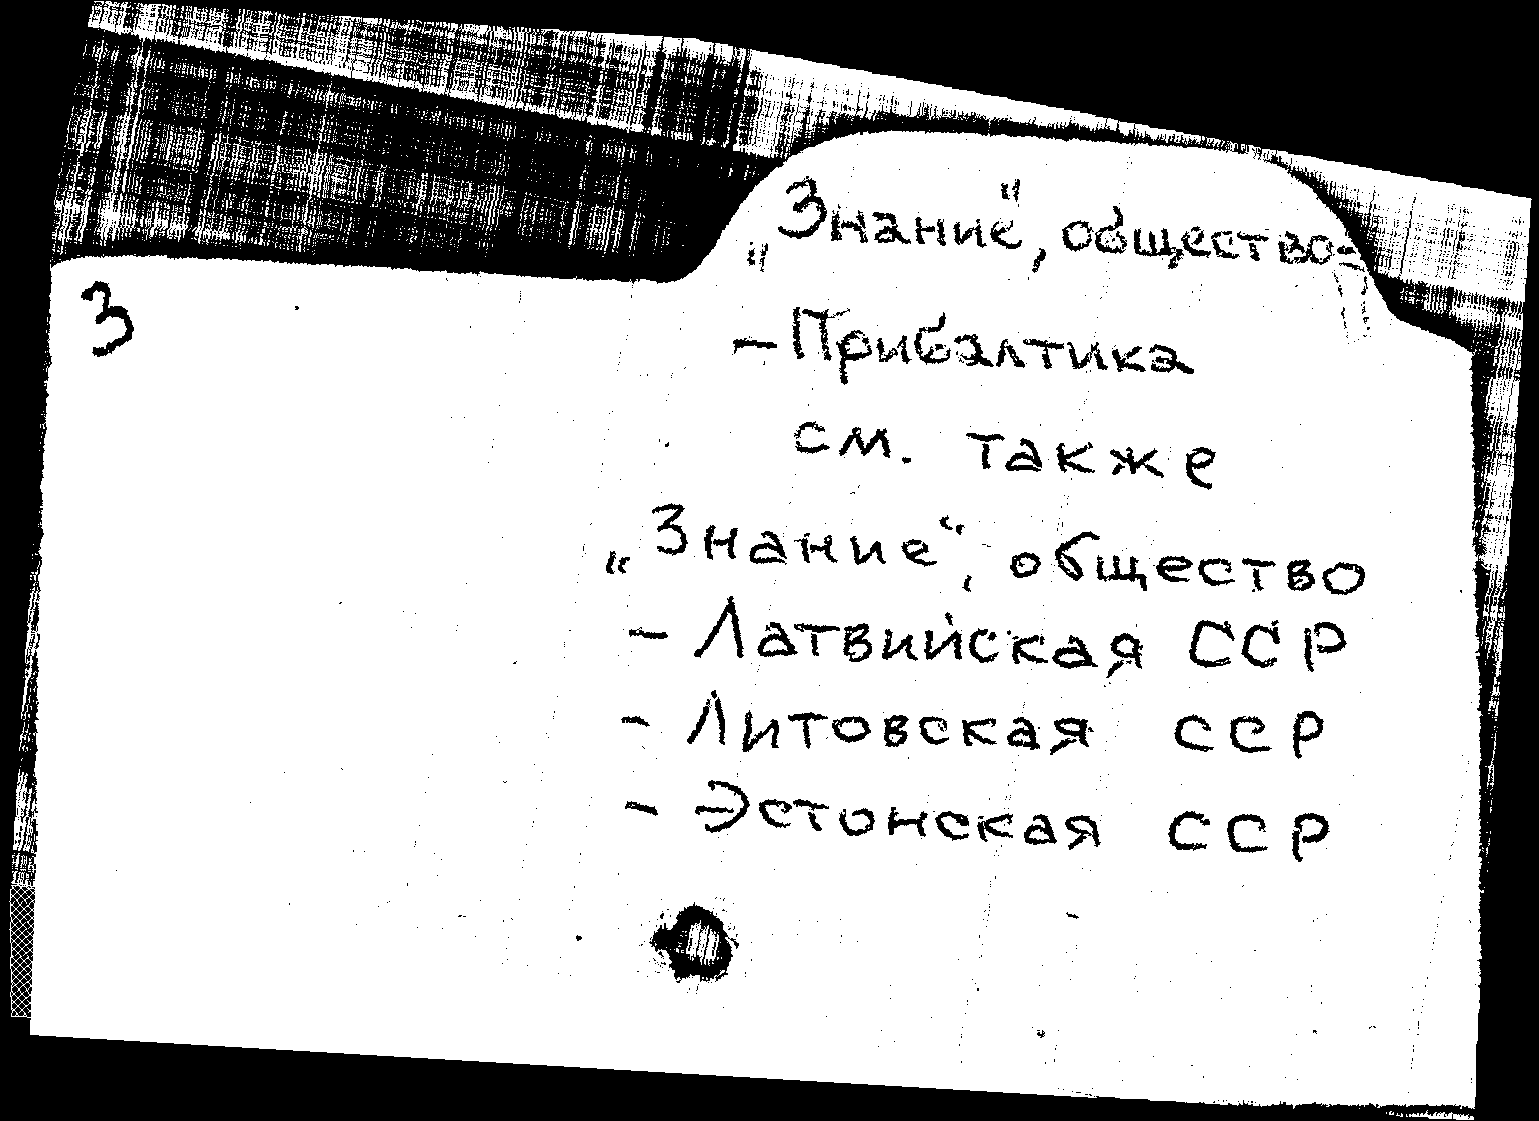 „Знание", общество-
З
- Прибалтика
см. также
„Знание“, общество
- Латвийская ССР
- Литовская ССР
- Эстонская ССР